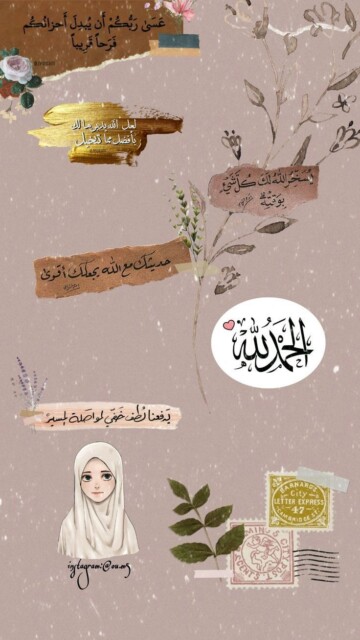 عَسَىٰ رَبُّكُمْ أَن يُبدِلَ أَحزانَكُم
فَرَحاً قَرِيباً
لعل الله يدبر ما لك
بأفضل مما تتخيل
يُسَخِّر اللهُ لَكَ كُلَّ شَيْءٍ
بِوَقْتِهِ
حديثك مع الله يجعلك أقوى
الحمد لله
يدفعنا لُطف خَفيّ لمواصلة المسير
instagram:@oa.ms
City
LETTER EXPRESS
47